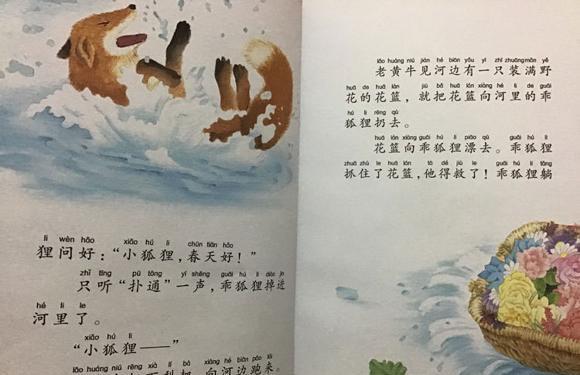 li wèn hǎo xiǎo hú li chūn tiān hǎo
狸问好："小狐狸，春天好！"
zhǐ tīng pū tōng yì shēng guāi hú li diào
只听"扑通"一声，乖狐狸掉进
hé li le
河里了。
xiǎo hú li
"小狐狸——"
lǎo huáng niú rēng xià lí bǎ xiàng hé biān pǎo
向河边跑来。
lǎo huáng niú jiàn hé biān yǒu yì zhī zhuāng mǎn yě
老黄牛见河边有一只装满野
huā de huā lán jiù bǎ huā lán xiàng hé li de guāi
花的花篮，就把花篮向河里的乖
hú li rēng qù
狐狸扔去。
huā lán xiàng guāi hú li piāo qù guāi hú li
花篮向乖狐狸漂去。乖狐狸
zhuā zhù le huā lán tā dé jiù le guāi hú li tǎng
抓住了花篮，他得救了！乖狐狸躺